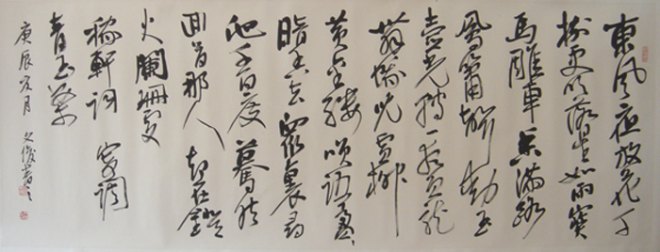 東風夜放花千
樹更吹落星如雨寶
馬雕車香滿路
鳳簫聲動玉
壺光轉一夜魚龍
舞蛾兒雪柳
黃金縷笑語盈
暗香去眾裏尋
他千百度驀然
回首那人卻在燈
火闌珊處
稼軒詞 寄調
青玉案
庚辰夏月 文俊書